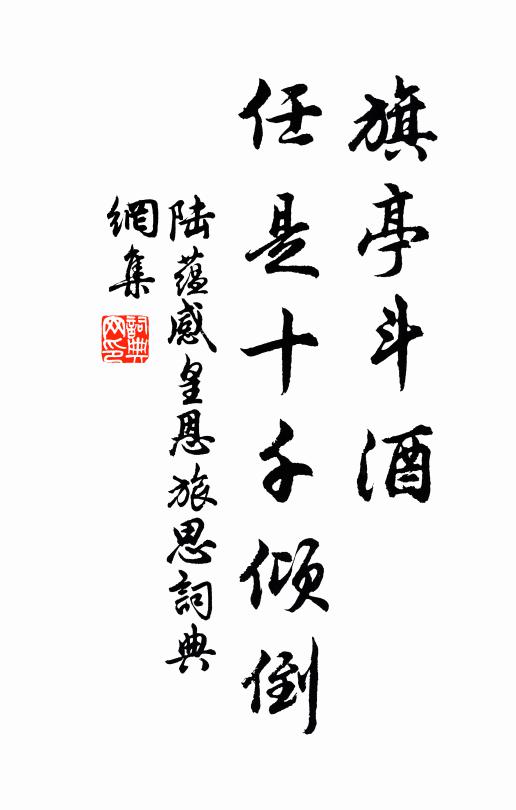 旗亭斗酒
任是十千傾倒
陆蕴感皇恩旅思詞典
網集
詞典网印